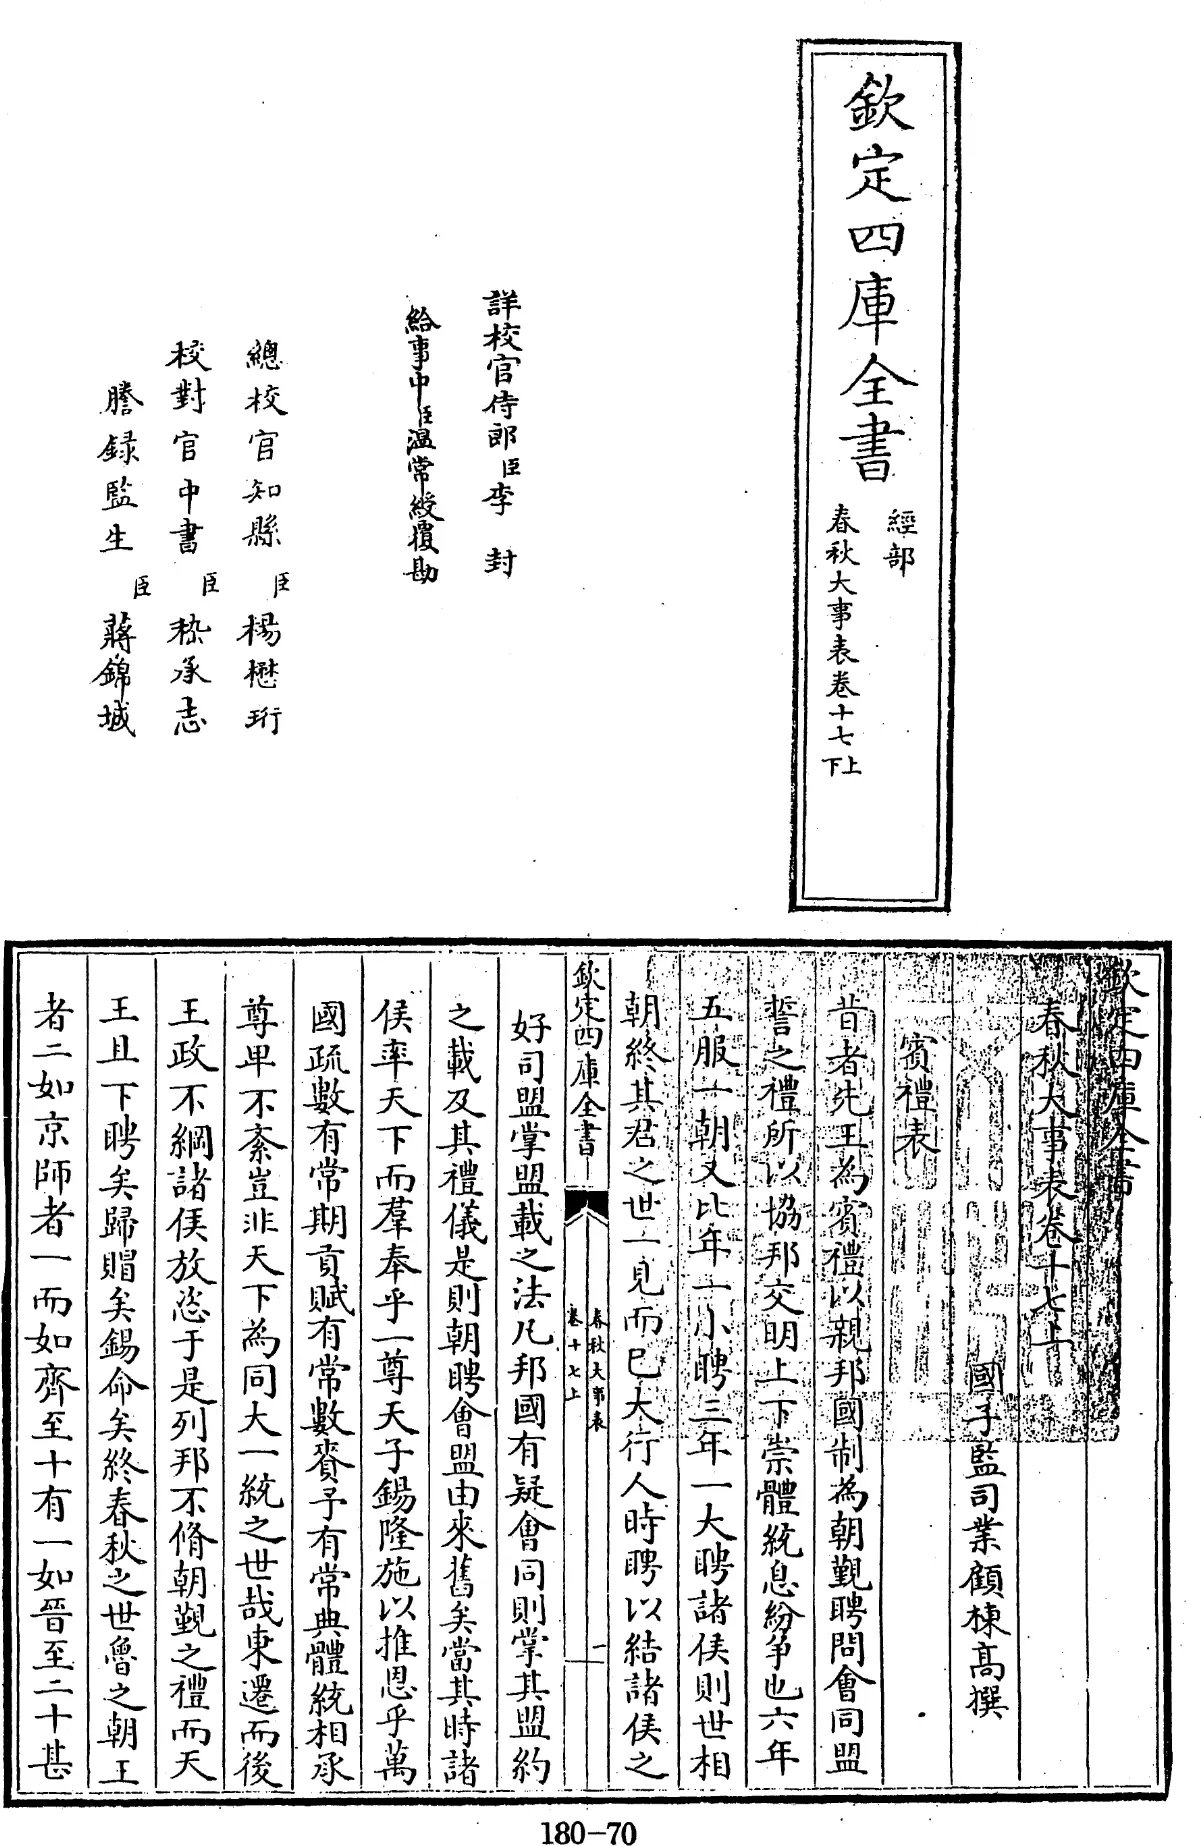 欽定四庫全書
經部
春秋大事表卷十七上下
詳校官侍郎臣李封
給事中臣温常綬覆勘
總校官知縣臣楊懋珩
校對官中書臣嵇承志
謄録監生臣蔣錦城
欽定四庫全書
春秋大事表卷十七上
國子監司業顧棟高撰
賓禮表
昔者先王為賓禮以親邦國制為朝覲聘問會同盟
誓之禮所以協邦交明上下崇體統息紛爭也六年
五服一朝又比年一小聘三年一大聘諸侯則世相
朝終其君之世一見而已大行人時聘以結諸侯之
欽定四庫全書
春秋大事表
卷十七上
一
好司盟掌盟載之法凡邦國有疑會同則掌其盟約
之載及其禮儀是則朝聘會盟由來舊矣當其時諸
侯率天下而羣奉乎一尊天子錫隆施以推恩乎萬
國疏數有常期貢賦有常數賚予有常典體統相承
尊卑不紊豈非天下為同大一統之世哉東遷而後
王政不綱諸侯放恣于是列邦不脩朝覲之禮而天
王且下聘矣歸賵矣錫命矣終春秋之世魯之朝王
者二如京師者一而如齊至十有一如晉至二十甚
180-70